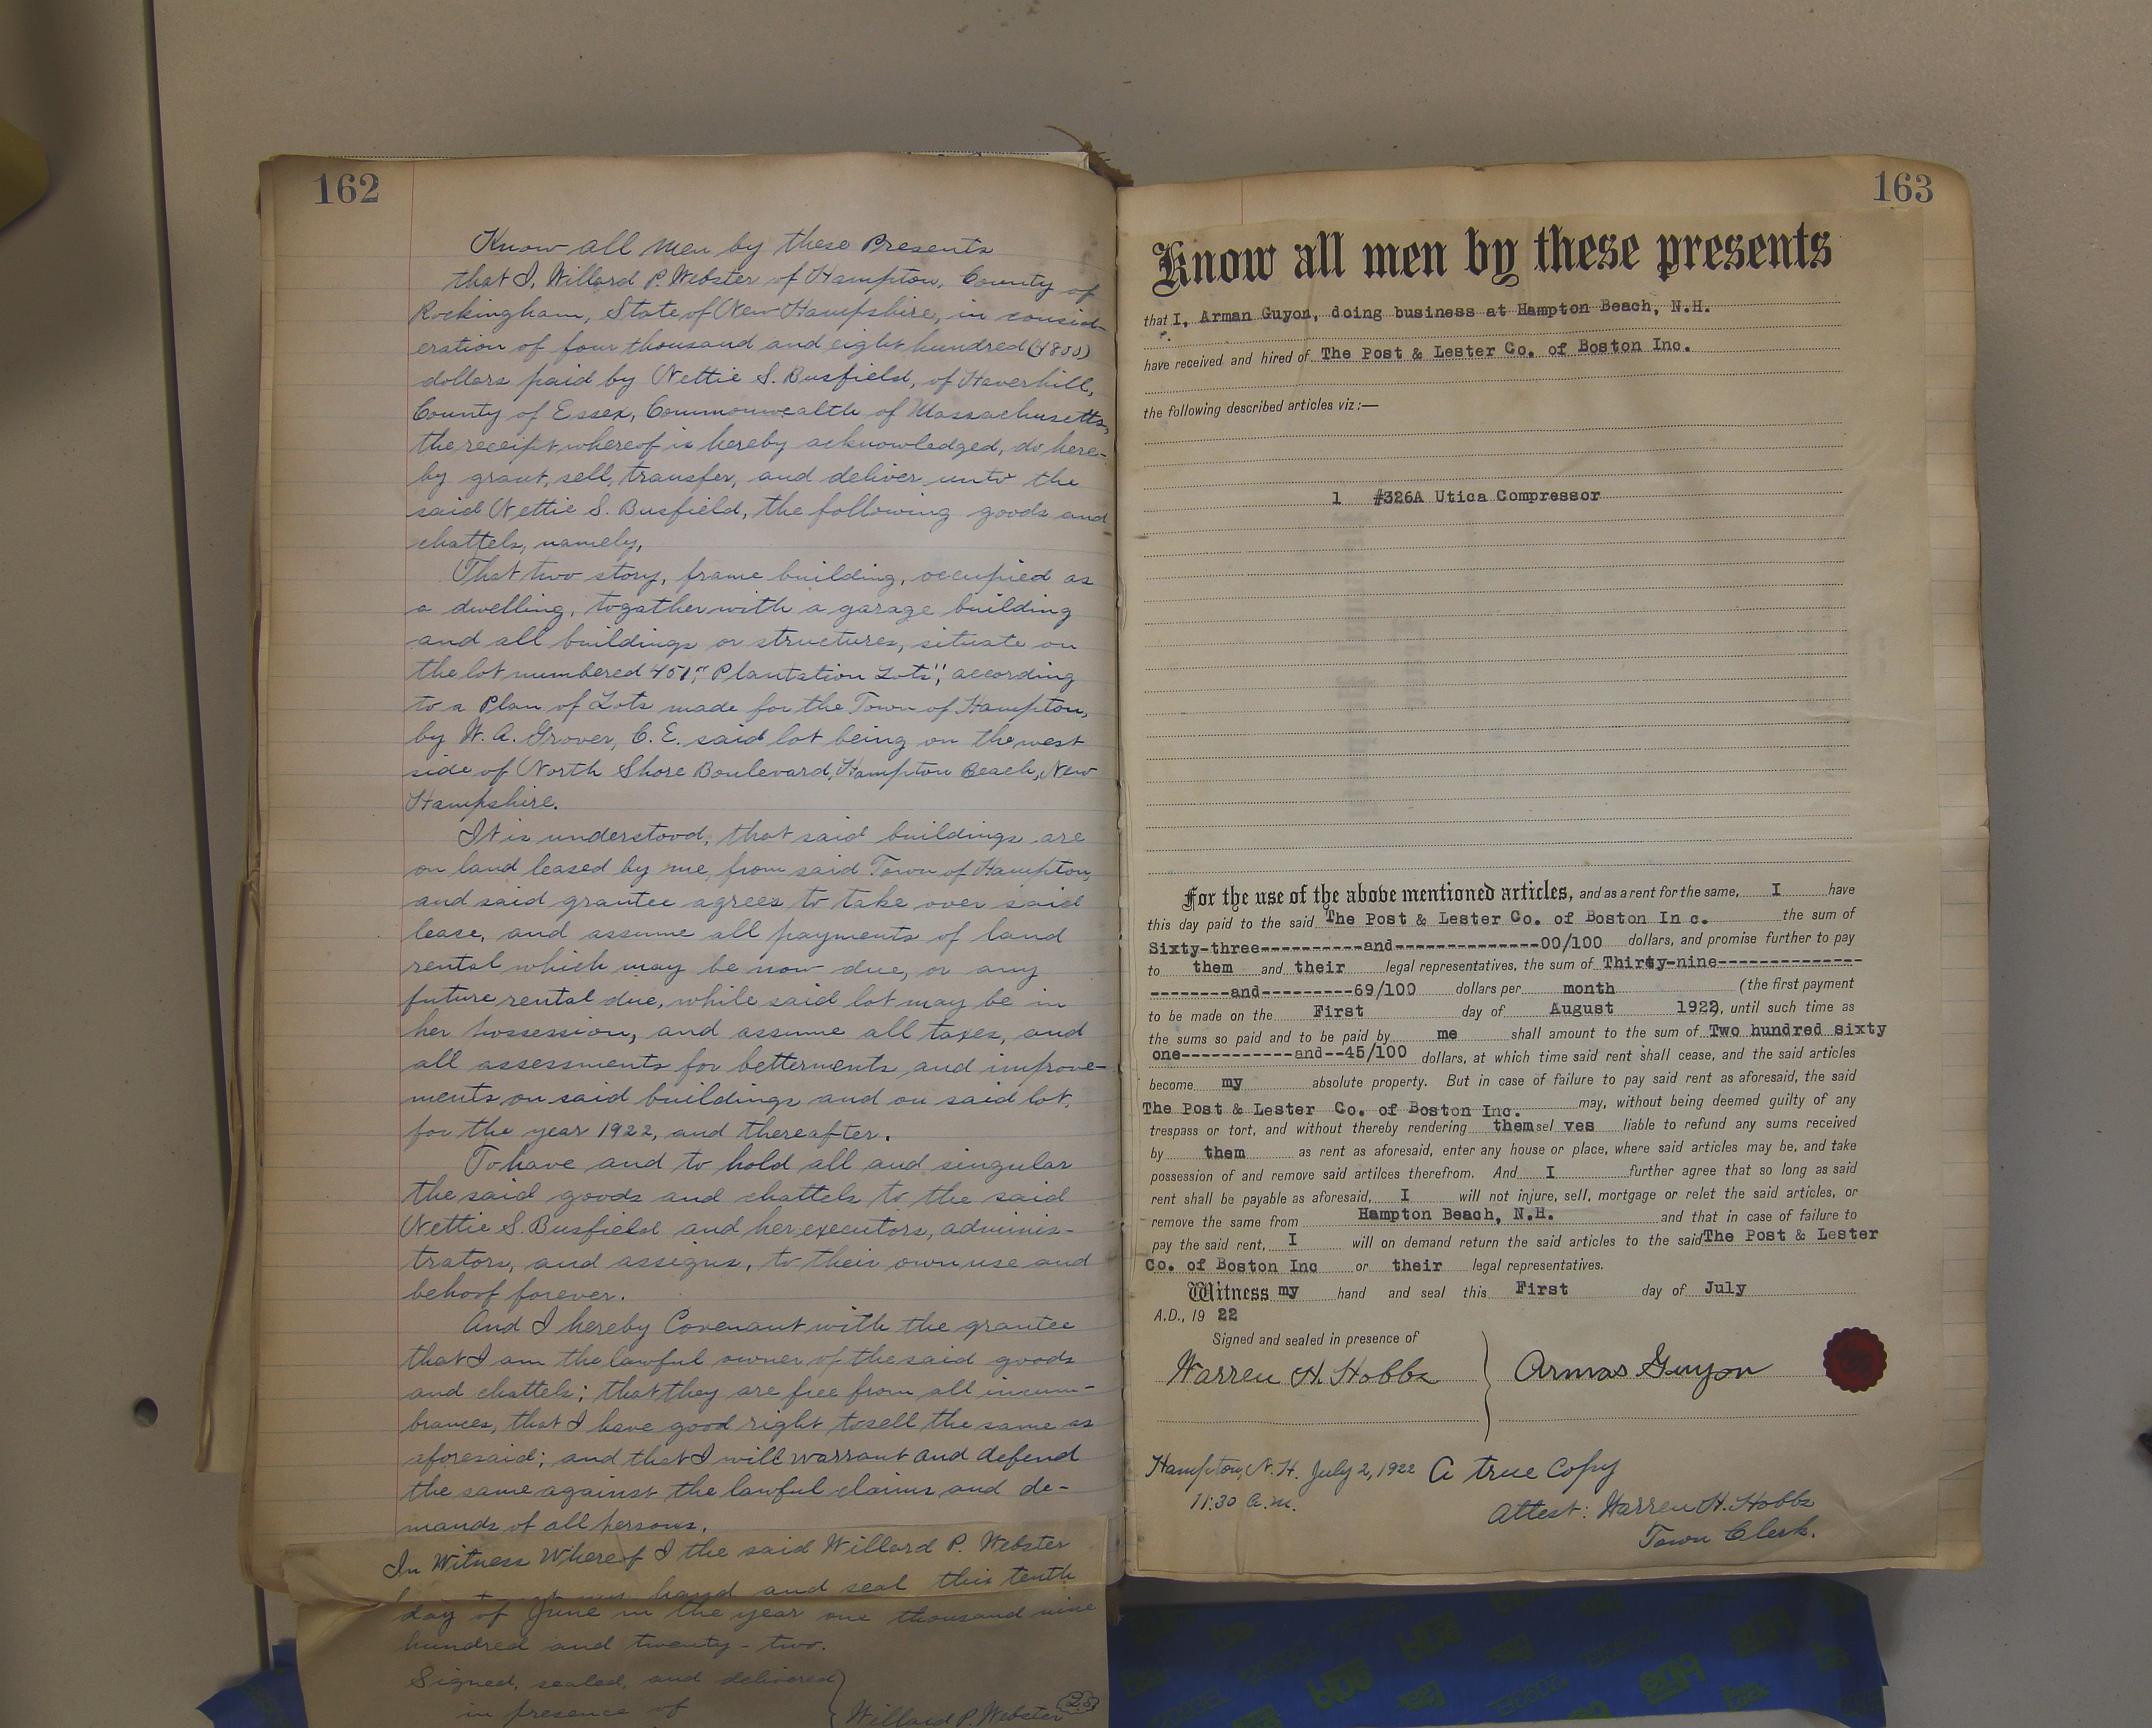 162
Know all men by these Presents
that I, Willard P. Webster of Hampton, County of
Rockingham, State of New Hampshire, in consid-
eration of four thousand and eight hundred (4800)
dollars paid by Nettie S. Busfield, of Haverhill,
County of Essex, Commonwealth of Massachusetts,
the receipt whereof is hereby acknowledged, do here-
by grant, sell, transfer, and deliver unto the
said Nettie S. Busfield, the following goods and
chattels, namely,
That two story, frame building, occupied as
a dwelling, togather with a garage building
and all buildings or structures, situate on
the lot numbered 451, "Plantation Lots", according
to a Plan of Lots made for the Town of Hampton,
by W. A. Grover, C. E. said lot being on the west
side of North Shore Boulevard, Hampton Beach, New
Hampshire.
It is understood, that said buildings are
on land leased by me, from said Town of Hampton,
and said grantee agrees to take over said
lease, and assume all payments of land
rental which may be now due, or any
future rental due, while said lot may be in
her possession, and assume all taxes, and
all assessments for betterments and improve-
ments on said buildings and on said lot,
for the year 1922, and thereafter.
To have and to hold all and singular
the said goods and chattels to the said
Nettie S. Busfield and her executors, adminis-
trators, and assigns, to their own use and
behoof forever.
And I hereby Covenant with the grantee
that I am the lawful owner of the said goods
and chattels; that they are free from all incum-
brances, that I have good right to sell the same as
aforesaid; and that I will warrant and defend
the same against the lawful claims and de-
mands of all persons.
In Witness Whereof I the said Willard P. Webster
my hand and seal this tenth
day of June in the year one thousand nine
hundred and twenty-two.
Signed, sealed, and delivered
in presence of
Willard P. Webster
163
Know all men by these presents
that I, Arman Guyon, doing business at Hampton Beach, N.H.
have received and hired of The Post & Lester Co. of Boston Inc.
the following described articles viz:—
1 #326A Utica Compressor
For the use of the above mentioned articles, and as a rent for the same, I have
this day paid to the said The Post & Lester Co. of Boston In c. the sum of
Sixty-three----------and--------------00/100 dollars, and promise further to pay
to them and their legal representatives, the sum of Thirty-nine--------------
--------and---------69/100 dollars per month (the first payment
to be made on the First day of August 1922), until such time as
the sums so paid and to be paid by me shall amount to the sum of Two hundred sixty
one-----------and--45/100 dollars, at which time said rent shall cease, and the said articles
become my absolute property. But in case of failure to pay said rent as aforesaid, the said
The Post & Lester Co. of Boston Inc. may, without being deemed guilty of any
trespass or tort, and without thereby rendering themsel ves liable to refund any sums received
by them as rent as aforesaid, enter any house or place, where said articles may be, and take
possession of and remove said artilces therefrom. And I further agree that so long as said
rent shall be payable as aforesaid, I will not injure, sell, mortgage or relet the said articles, or
remove the same from Hampton Beach, N.H. and that in case of failure to
pay the said rent, I will on demand return the said articles to the said The Post & Lester
Co. of Boston Inc or their legal representatives.
Witness my hand and seal this First day of July
A.D., 19 22
Signed and sealed in presence of
Warren H. Hobbs } Armas Guyon
Hampton, N. H. July 2, 1922 A true Copy
11:30 A.M.
Attest: Warren H. Hobbs
Town Clerk.